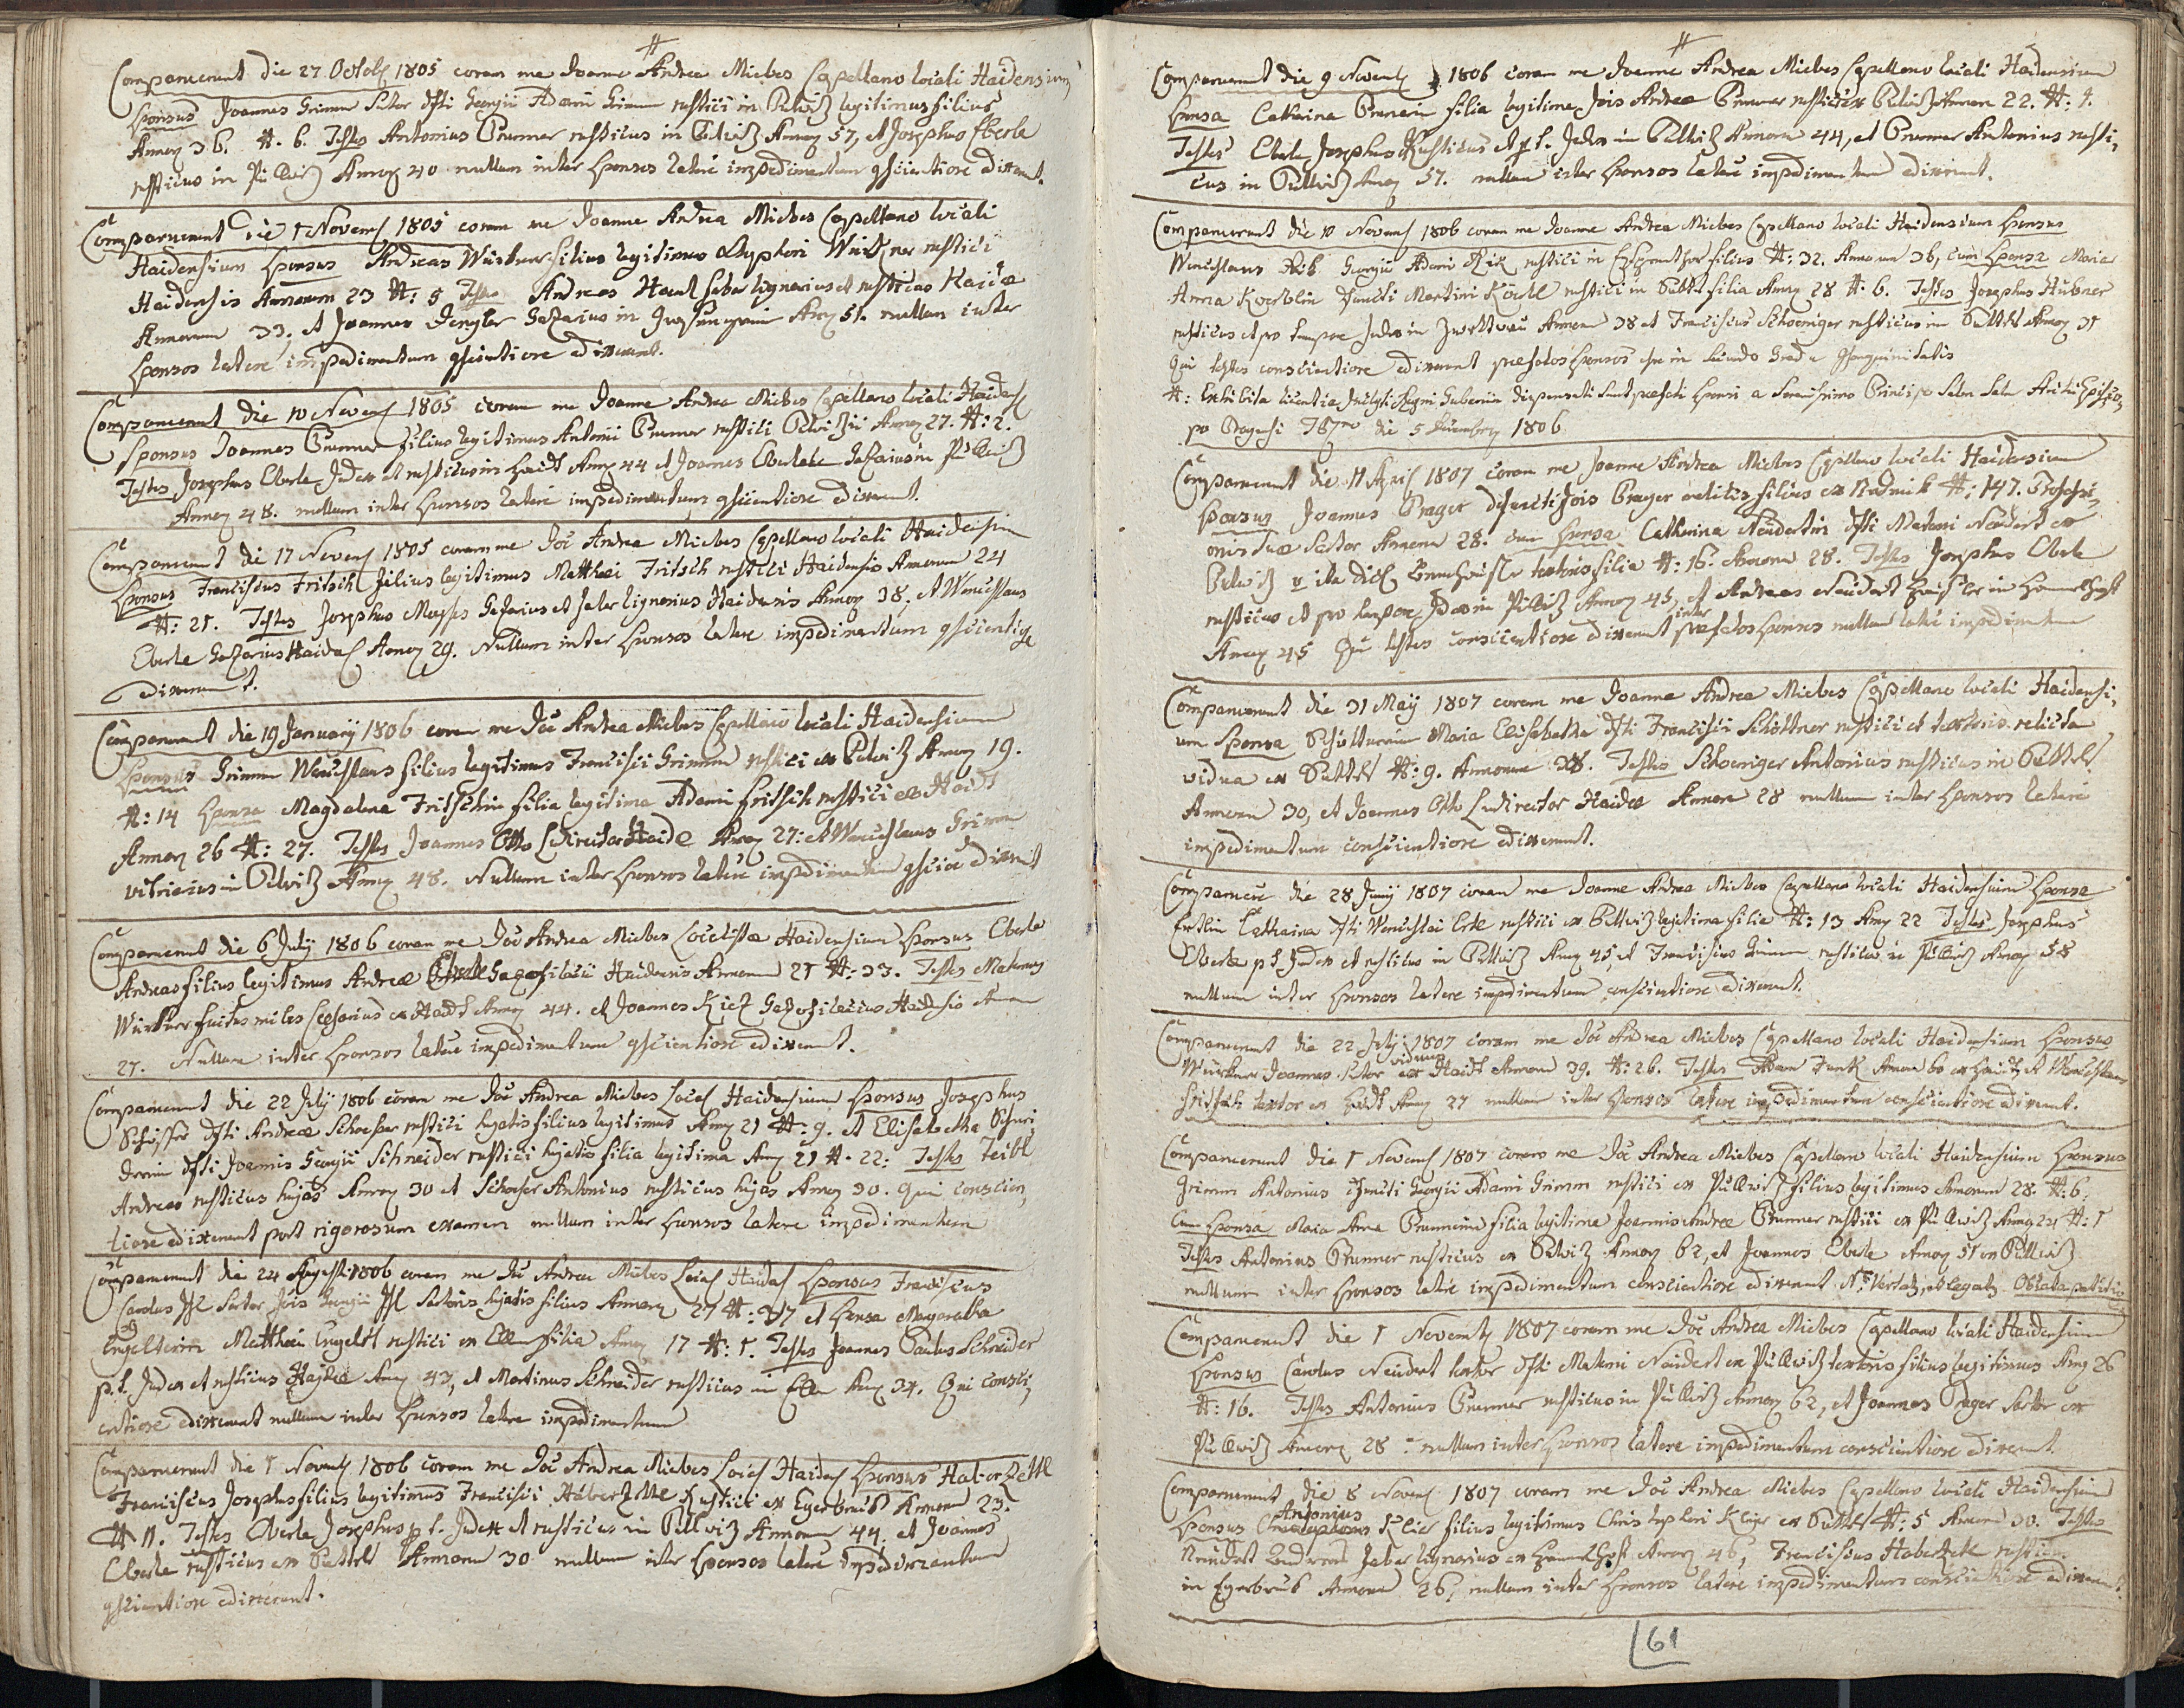 #
Comparuerunt die 27 Octob 1805 coram me Joanne Andrea Miebes Capellano locali Haidensium
Sponsus Joannes Grimm Sutor dfti Georgii Adami Grimm rustici in Pilwiz legitimus filius
Annor 36. #. 6. Testes Antonius Brunner rusticus in Pilwiz Annor 57, et Josephus Eberle
rusticus in Pillwiz Annor 40 nullum inter sponsos latere impedimentum gscientiose dixerunt.
Comparuerunt die 1 Novemb 1805 coram me Joanne Andrea Miebes Capellano locali
Haidensium Sponsus Andreas filius legitimus rustici
Haidensis Annorum 23 #: 5 Testes Andreas faber lignarius et rusticus Haidæ
Annorum 33, et Joannes Dengler Gazarius in Annor 51. nullum inter
sponsos latere impedimentum gscientiose dixerunt.
Comparuerunt die 10 Novemb 1805 coram me Joanne Andrea Miebes Capellano locali Haidens
Sponsus Joannes Brunner filius legitimus Antonii Brunner rustici Annor 27. #: 2.
Testes Josephus Eberle Judex et rusticus in Haidt Annor 44 et Joannes Gazarius in Pillwiz
Annor 48. nullum inter sponsos latere impedimentum gscientiose dixerunt.
Comparuerunt die 17 Novemb 1805 coram me Joe Andrea Miebes Capellano locali Haidensium
Sponsus Franciscus Fritsch filius legitimus Matthæi Fritsch rustici Haidensis Annorum 24
#: 21. Testes Josephus Gazarius et faber lignarius Haidensis Annor 38, et Wenceslaus
Eberle Gazarius Haidæ Annor 29. Nullum inter sponsos latere impedimentum gscientiose
dixerunt.
Comparuerunt die 19 January 1806 coram me Joe Andrea Miebes Capellano locali Haidensium
Sponsus Grimm Wenceslaus filius legitimus Francisci Grimm rustici ex Pilwiz Annor 19.
#: 14 Sponsa Magdalena Fritschin filia legitima Adami Fritsch rustici ex Haidt
Annor 26 #: 27. Testes Joannes Otto Ludirector Haidæ Annor 27: et Wenceslaus Grimm
in Pilwiz Annor 48. Nullum inter sponsos latere impedimentum gscie dixerunt
Comparuerunt die 6 July 1806 coram me Joe Andrea Miebes Localista Haidensium Sponsus Eberle
Andreas filius legitimus Andreæ Haidensis Annorum 21 #: 33. Testes Maternus
miles ex Haidt Annor 44. et Joannes Haidensis Annor
27. Nullum inter sponsos latere impedimentum gscientiose dixerunt.
Comparuerunt die 22 July 1806 coram me Joe Andrea Miebes Local Haidensium Sponsus Josephus
Schosser dfti Andreæ Schosser rustici hujatis filius legitimus Annor 21 #: 9. et Elisabetha Schnei,
derin dfti Joannis Georgii Schneider rustici hujatis filia legitima Annor 21 #. 22: Testes Teibl
Andreas rusticus hujas Annor 30 et Schosser Antonius rusticus hujas Annor 30. Qui conscien,
tiose dixerunt post rigorosum examen nullum inter sponsos latere impedimentum
Comparuerunt die 24 Augusti 1806 coram me Joe Andrea Miebes Local Haidens Sponsus Franciscus
Carolus Sartor Jois Georgii Sartoris hujatis filius Annorum 27 #: 37 et Sponsa Margaretha
Matthæi Engelst rustici ex Ellm filia Annor 17 #: 1. Testes Joannes Paulus Schneider
p. t. Judex et rusticus Annor 43, et Martinus Schneider rusticus in Annor 34. Qui consci,
entiose dixerunt nullum inter sponsos latere impedimentum
Comparuerunt die 1 Novemb 1806 coram me Joe Andrea Miebes Local Haidens Sponsus Haberzettl
Franciscus Josephus filius legitimus Francisci Haberzettl Rustici ex Egerbrus Annorum 23.
#: 11. Testes Eberle Josephus p. t. Judex et rusticus in Pillwiz Annorum 44, et Joannes
Eberle rusticus ex Annorum 30 nullum inter sponsos latere impedimentum
gscientiose dixerunt.
#
Comparuerunt die 9 Novemb 1806 coram me Joanne Andrea Miebes Capellano locali Haidensium
Sponsa Catharina Brunerin filia legitima Jois Andreæ Brunner rustici ex Pilwiz Annor 22. #: 4.
Testes Eberle Josephus Rusticus et p. t. Judex in Pillwiz Annorum 44, et Brunner Antonius rusti,
cus in Pillwiz Annor 57. nullum inter sponsos latere impedimentum dixerunt.
Comparuerunt die 10 Novemb 1806 coram me Joanne Andrea Miebes Capellano locali Haidensium Sponsus
Wenceslaus Georgii Adami rustici in filius #: 32. Annorum 36, cum Sponsa Maria
Anna defuncti Martini rustici in filia Annor 28 #: 6. Testes Josephus Hübner
rusticus et pro tempore Judex in Annorum 38 et Franciscus Schoeniger rusticus in Annor 31
Qui testes conscientiose dixerunt præfatos sponsos esse in secundo gradu gsanguinitatis
#: Exhibita licentia Inclyti Regni Gubernii dispensati sunt præfati sponsi a Serenissimo Principe Salm Salm Archi Episco,
po Pragensi die 5 1806
Comparuerunt die 11 April 1807 coram me Joanne Andrea Miebes Capellano locali Haidensium
Sponsus Joannes Prager defuncti Jois Prager militis filius ex #: 147. Professi,
onis suæ Sartor Annorum 28. cum Sponsa Catharina Neudertin dfti Materni Neudert ex
Pilwiz textoris filia #: 16. Annorum 28. Testes Josephus Eberle
rusticus et pro tempore Judex in Pillwiz Annor 45, et Andreas Neudert
Annor 45 Qui testes conscientiose dixerunt inter præfatos sponsos nullum latere impedimentum
Comparuerunt die 31 May 1807 coram me Joanne Andrea Miebes Capellano locali Haidensi,
um Sponsa Maria Elisabetha dfti Francisci Schöttner rustici et textoris relicta
vidua ex #: 9. Annorum 38. Testes Schoeniger Antonius rusticus in
Annorum 30, et Joannes Otto Ludirector Haidæ Annorum 28 nullum inter sponsos latere
impedimentum conscientiose dixerunt.
Comparuere die 28 Juny 1807 coram me Joanne Andrea Miebes Capellano locali Haidensium Sponsa
Ertlin Catharina dfti Wenceslai Ertl rustici ex Pillwiz legitima filia #: 13 Annor 22 Testes Josephus
Eberle p. t. Judex et rusticus in Pillwiz Annor 45, et Franciscus Grimm rusticus in Pillwiz Annor 58
nullum inter sponsos latere impedimentum conscientiose dixerunt.
Comparuerunt die 22 July 1807 coram me Joe Andrea Miebes Capellano locali Haidensium Sponsus
Joannes Sutor viduus ex Haidt Annorum 39. #: 26. Testes Adam Funk Annor 60 ex Haidt, et Wenceslaus
Fritsch textor ex Haidt Annor 27 nullum inter sponsos latere impedimentum conscientiose dixerunt.
Comparuerunt die 1 Novemb 1807 coram me Joe Andrea Miebes Capellano locali Haidensium Sponsus
Grimm Antonius defuncti Georgii Adami Grimm rustici ex Pillwiz filius legitimus Annorum 28. #: 6.
Cum Sponsa Maria Anna Brunnerin filia legitima Joannis Andreæ Brunner rustici ex Pillwiz Annor 24 #: 1
Testes Antonius Brunner rusticus ex Pilwiz Annor 62, et Joannes Eberle Annor 51 ex Pillwiz
nullum inter sponsos latere impedimentum conscientiose dixerunt
Comparuerunt die 1 Novemb 1807 coram me Joe Andrea Miebes Capellano locali Haidensium
Sponsus Carolus Neudert textor dfti Materni Neudert ex Pillwiz textoris filius legitimus Annor 26
#: 16. Testes Antonius Brunner rusticus in Pillwiz Annor 62, et Joannes Prager Sartor ex
Pillwiz Annorum 28 nullum inter sponsos latere impedimentum conscientiose dixerunt.
Comparuerunt die 8 Novemb 1807 coram me Joe Andrea Miebes Capellano locali Haidensium
Sponsus Antonius Klier filius legitimus Christophori Klier ex #: 5 Annorum 30. Testes
Neudert Andreas faber lignarius ex Annor 46, Franciscus Haberzetl rusticus
in Egerbrus Annorum 26, nullum inter sponsos latere impedimentum conscientiose dixerunt.
61